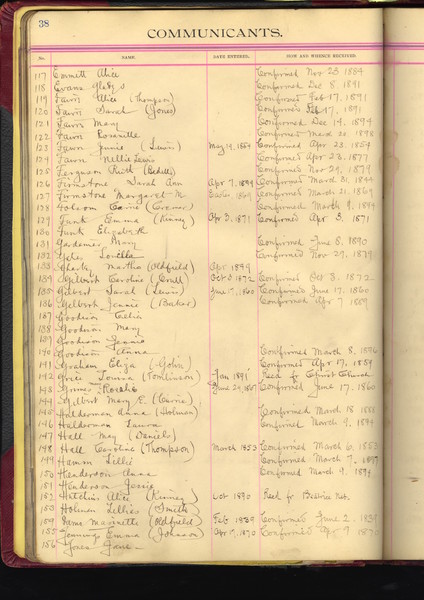 38
COMMUNICANTS.
No. NAME. DATE ENTERED. HOW AND WHENCE RECEIVED.
117 Emmett Alice Confirmed Nov 23 1884
118 Evans Gladys Confirmed Dec 8, 1891
119 Fawn Alice (Thompson) Confirmed Feb 17, 1891
120 Fawn Sarah (Jones) Confirmed Feb 17, 1891
121 Fawn Mary Confirmed Dec 14, 1894
122 Fawn Rosaville 1898
123 Fawn Jennie (Lewis) May 19, 1854 Confirmed Apr 23, 1854
124 Fawn Nellie Lewis Confirmed Apr 28, 1877
125 Ferguson Ruth Confirmed Nov 29, 1877
126 Firmstone Sarah Ann Apr 7, 1844 Confirmed March 31, 1844
127 Firmstone Margaret M. Easter 1869 Confirmed March 21, 1869
128 Folsom Carrie Confirmed March 9, 1894
129 Funk Emma (Kinney) Apr 3, 1871 Confirmed Apr 3, 1871
130 Funk Elizabeth
131 Gardener Mary Confirmed June 8, 1890
132 Luella Confirmed Nov 29, 1879
133 Martha (Oldfield) 1849
134 Gilbert Caroline Oct 3 1872 Confirmed Oct 3, 1872
135 Gilbert Sarah (Lewis) June 17, 1860 Confirmed June 17, 1860
136 Jennie (Baker) Confirmed Apr 7, 1869
137 Goodwin Celia
138 Goodwin Mary
139 Goodwin Jennie
140 Goodwin Anna Confirmed March 8, 1896
141 Graham Eliza Confirmed Apr 17, 1858
142 Gries Louisa (Tomlinson) Jan 1891 Recd fr Christ Church
143 Grimes Rosalie June 24, 1860 Confirmed June 17, 1860
144 Gilbert Mary E.
145 Haldeman Anna (Holman) Confirmed March 18 1888
146 Haldeman Laura Confirmed March 9, 1894
147 Hall May (Daniels)
148 Hall Caroline (Thompson) March 1853 Confirmed March 6, 1853
149 Hamm Lillie Confirmed March 7, 1897
150 Henderson Anna Confirmed March 9, 1894
151 Henderson Jessie
152 Hutchins Alice (Kinney) Oct 1890 Recd fr Beatrice Neb.
153 Holman Lillies (Smith)
154 Marinette (Oldfield) Feb 1839 Confirmed June 2, 1839
155 Jennings Emma (Johnson) Apr 9, 1870 Confirmed Apr 9 1870
156 Jones Jane